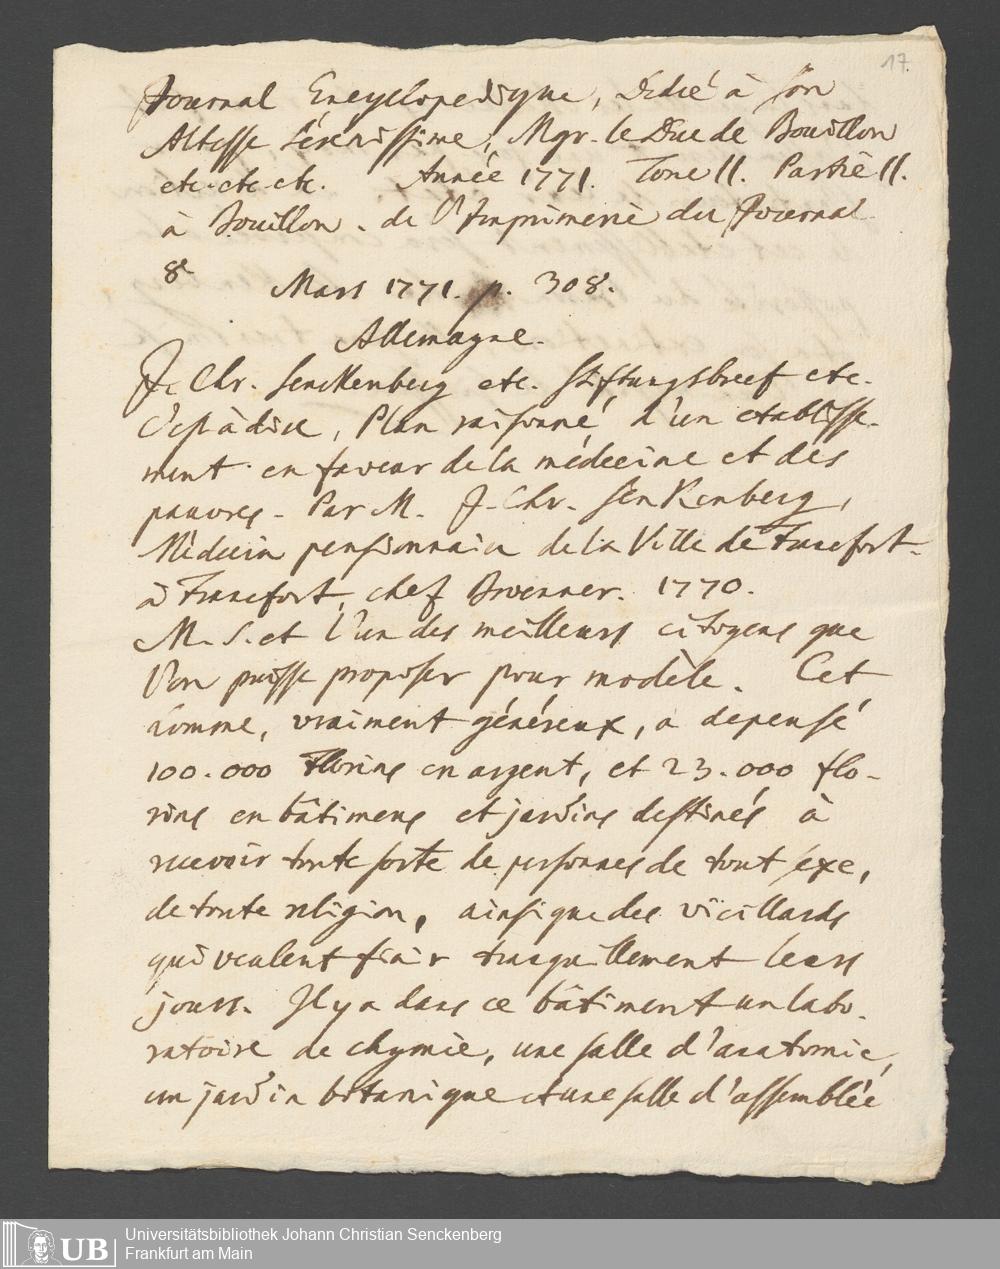 17.
Journal Encyclopedique, Dedié à son
Altesse Sérénissime, Mgr. le Duc de Bouillon
etc. etc. etc. Année 1771. Tome II. Partie II.
à Bouillon. de l'Imprimerie du Journal.
8º
Mars 1771. p. 308.
Allemagne.
J. Chr. Senckenberg etc. Stiftungsbreef etc.
C'est à dire, Plan raisonné d'un etablisse-
ment en faveur de la médecine et des
pauvres. Par M. J. Chr. Senkenberg,
Médecin pensionnaire de la Ville de Francfort.
à Francfort, chez Broenner. 1770.
M. S. et l'un des meilleurs citoyens que
l'on puisse proposer pour modèle. Cet
homme, vraiment généreux, a depensé
100.000 Florins en argent, et 23.000 flo-
rins en bâtimens et jardins destinés à
recevoir toute sorte de personnes de tout sexe,
de toute religion, ainsi que des vieillards
qui veulent finir tranquillement leurs
jours. Il y a dans ce bâtiment un labo-
ratoire de chymie, une salle d'anatomie,
un jardin botanique et une salle d'assemblée
UB
Universitätsbibliothek Johann Christian Senckenberg
Frankfurt am Main